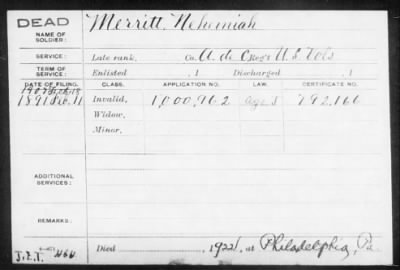 DEAD
NAME OF SOLDIER:
Merritt, Nehemiah
SERVICE:
Late rank, Co. A. de Corps U S Vols
TERM OF SERVICE:
Enlisted , 1 Discharged , 1
DATE OF FILING. CLASS. APPLICATION NO. LAW. CERTIFICATE NO.
1907
1891 Feb. 11 Invalid, 1,000,962 792,166
Widow,
Minor,
ADDITIONAL SERVICES:
REMARKS:
Died 1922, at Philadelphia, Pa.